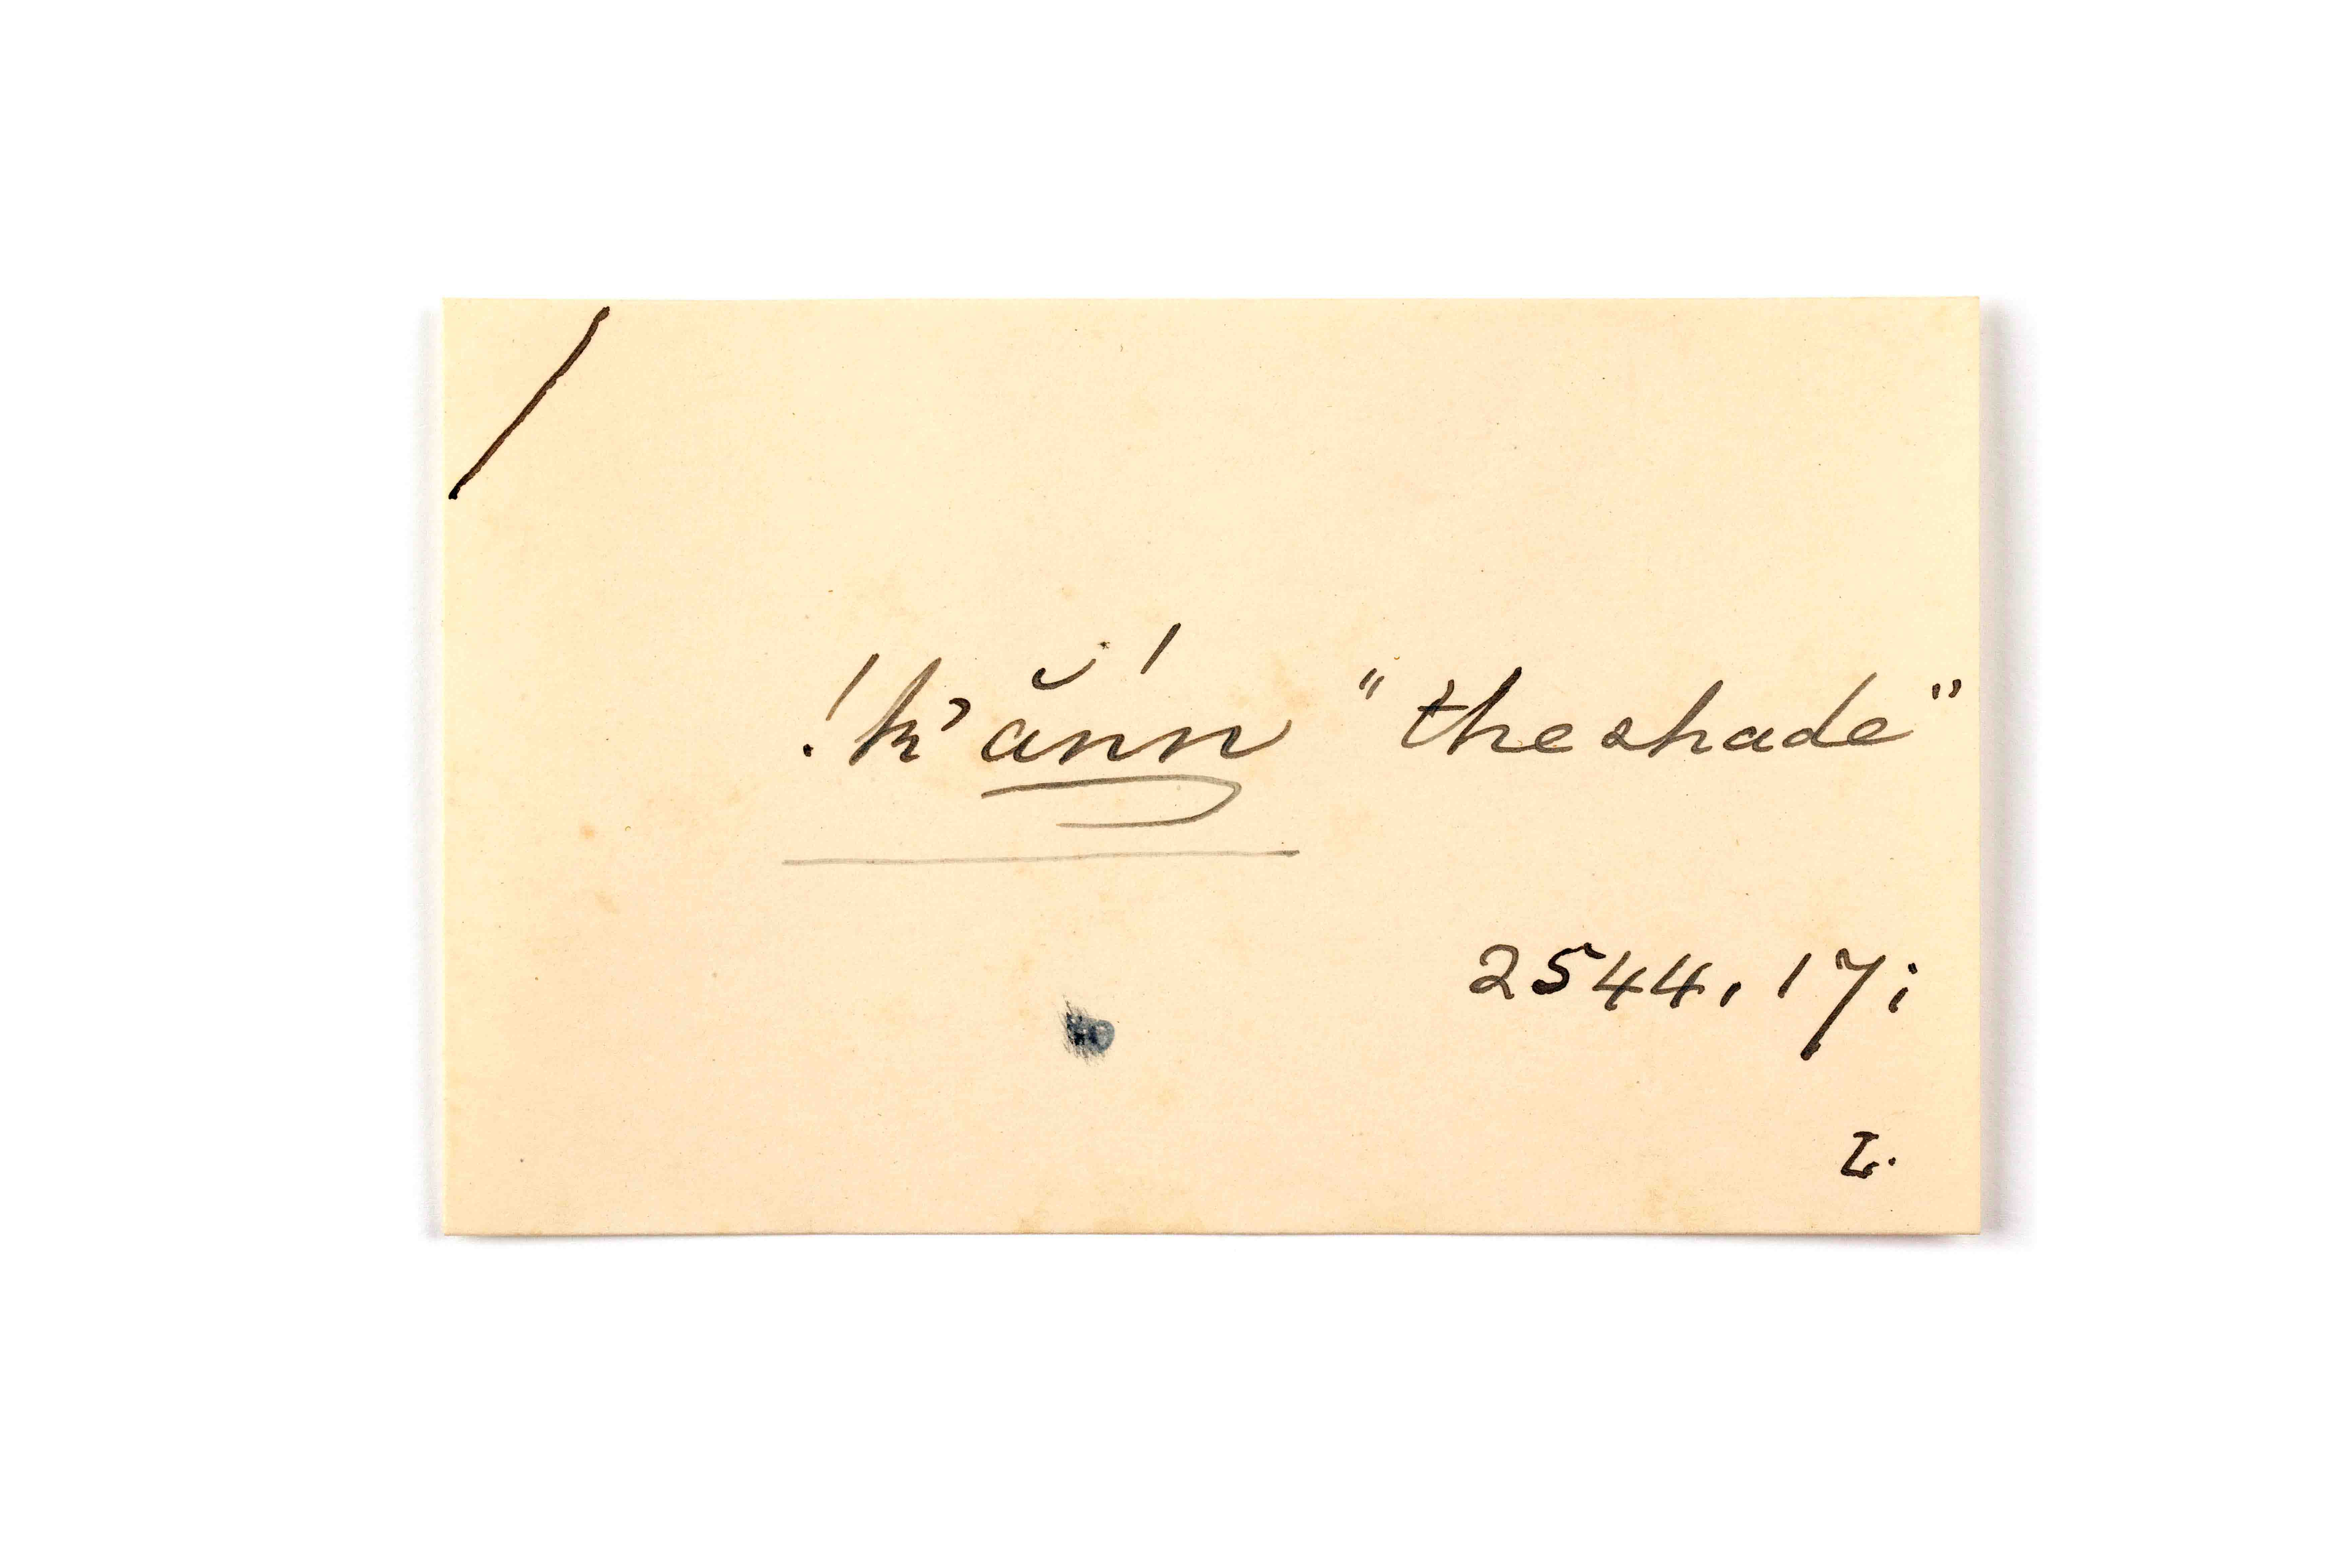 !k’ăn̄́n "the shade"
2544, 17i
L.